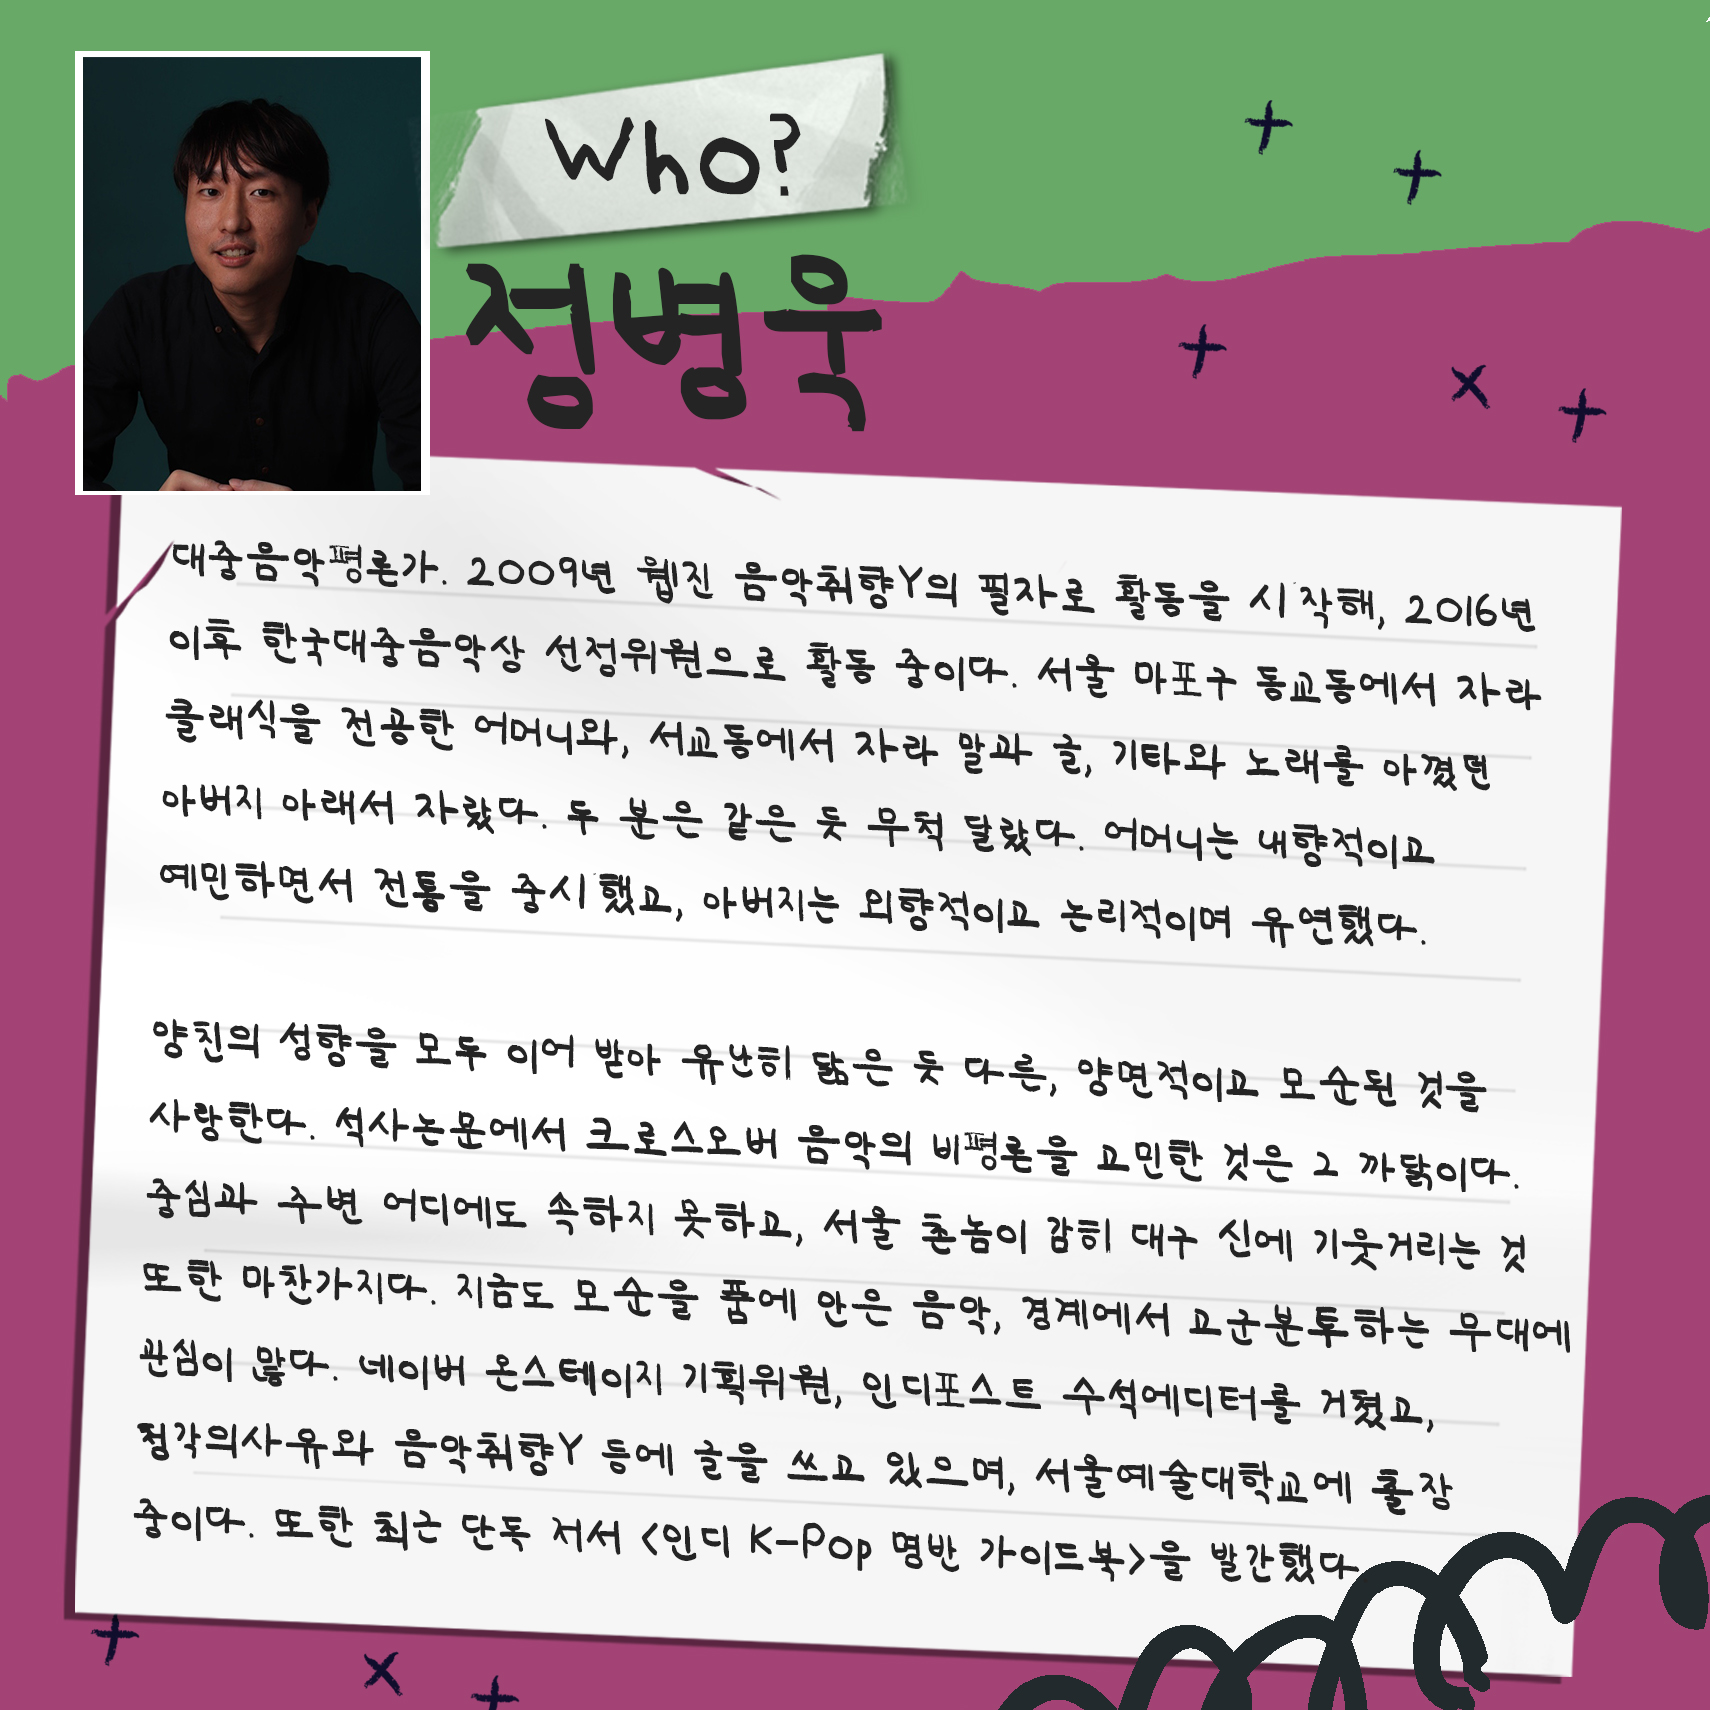 Who?
정병욱
대중음악평론가. 2009년 웹진 음악취향Y의 필자로 활동을 시작해, 2016년
이후 한국대중음악상 선정위원으로 활동 중이다. 서울 마포구 동교동에서 자라
클래식을 전공한 어머니와, 서교동에서 자라 말과 글, 기타와 노래를 아꼈던
아버지 아래서 자랐다. 두 분은 같은 듯 무척 달랐다. 어머니는 내향적이고
예민하면서 전통을 중시했고, 아버지는 외향적이고 논리적이며 유연했다.
양친의 성향을 모두 이어 받아 유난히 닮은 듯 다른, 양면적이고 모순된 것을
사랑한다. 석사논문에서 크로스오버 음악의 비평론을 고민한 것은 그 까닭이다.
중심과 주변 어디에도 속하지 못하고, 서울 촌놈이 감히 대구 신에 기웃거리는 것
또한 마찬가지다. 지금도 모순을 품에 안은 음악, 경계에서 고군분투하는 무대에
관심이 많다. 네이버 온스테이지 기획위원, 인디포스트 수석에디터를 거쳤고,
정각의사유와 음악취향Y 등에 글을 쓰고 있으며, 서울예술대학교에 출강
중이다. 또한 최근 단독 저서 <인디 K-Pop 명반 가이드북>을 발간했다